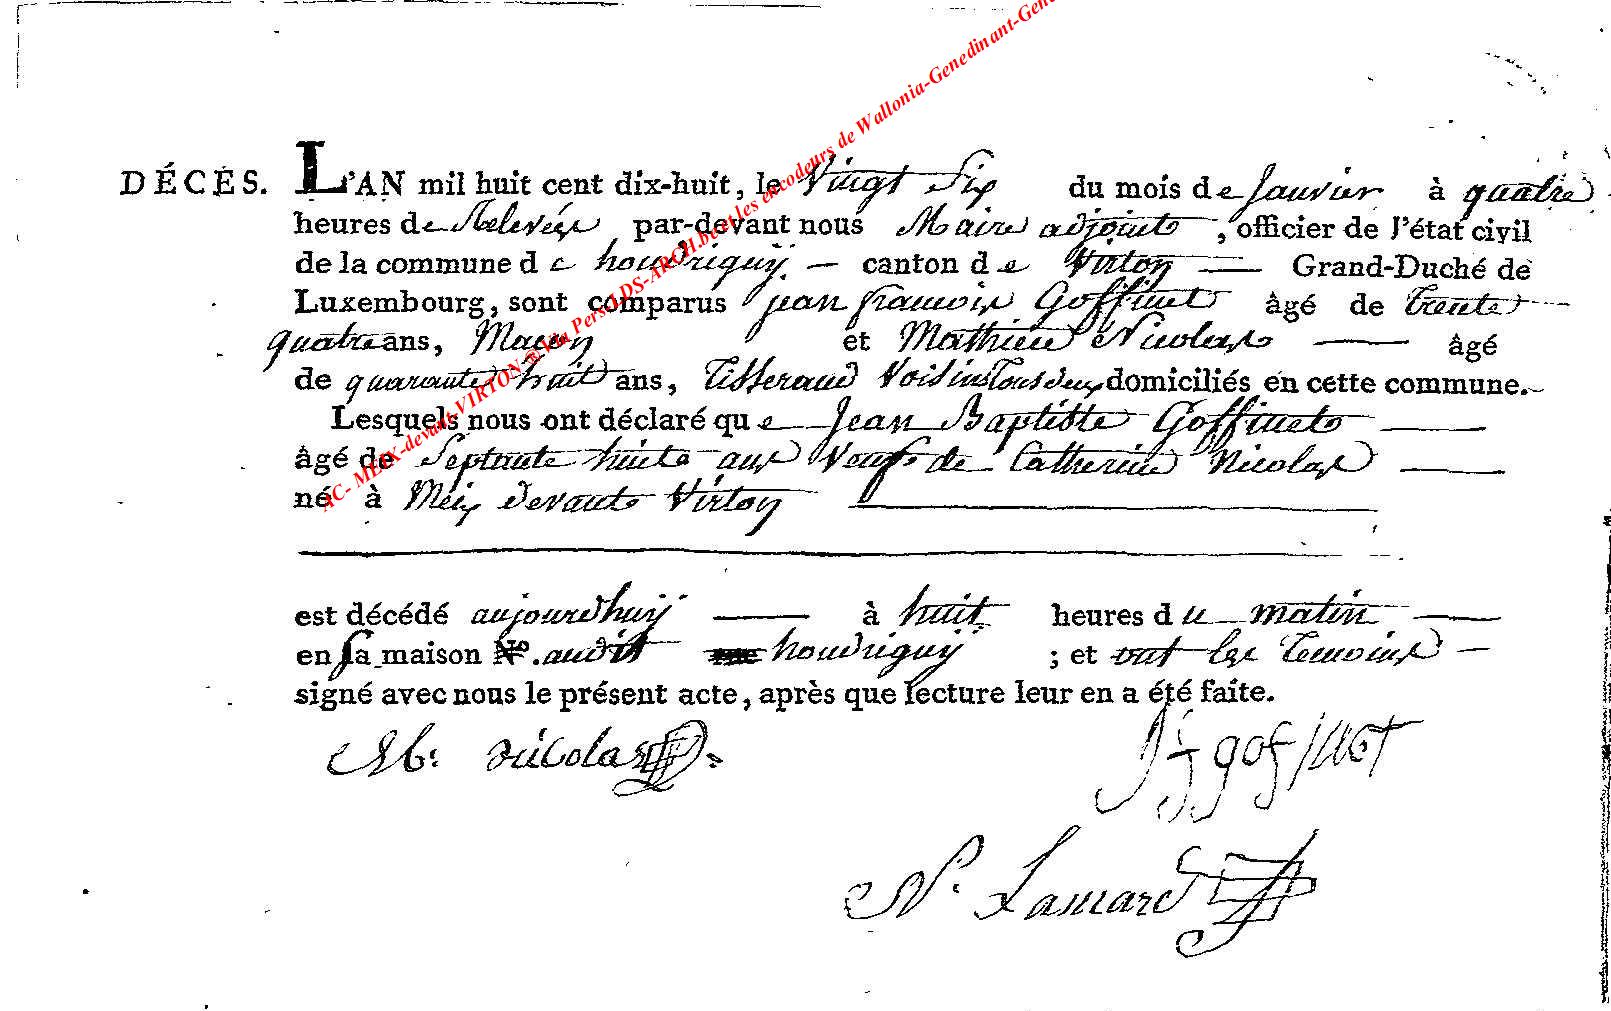 DÉCÈS. L'AN mil huit cent dix-huit, le Vingt Six du mois de Janvier à quatre
heures de Relevées par-devant nous Maire adjoint, officier de l'état civil
de la commune de houdrigny — canton de Virton — Grand-Duché de
Luxembourg, sont comparus jean francois Goffinet âgé de trente
quatre ans, Maçon et Mathieu Nicolas — âgé
de quarante huit ans, Tisserand Voisins Tous deux domiciliés en cette commune.
Lesquels nous ont déclaré que Jean Baptiste Goffinet —
âgé de Septante huite ans Veuf de Catherine Nicolas —
né à Meix devant Virton
est décédé aujourdhuy — à huit heures du matin —
en sa maison N°. audit rue houdrigny ; et ont les temoins —
signé avec nous le présent acte, après que lecture leur en a été faite.
M: nicolas jf goffinet
N. Lamard
AC- MEIX-devant-VIRTON @ Via Perso LDS-ARCH.be et les encodeurs de Wallonia-Genedinant-Gen